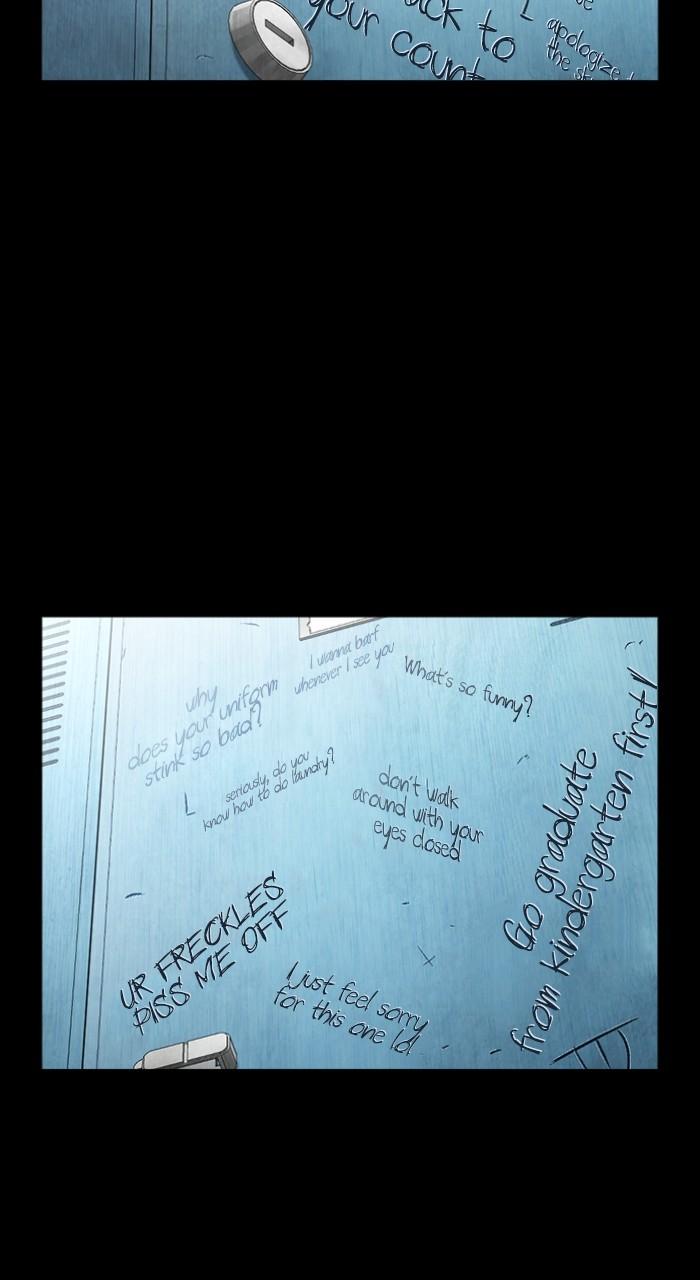 your
to
your
apologize
the
I wanna barf
whenever I see you
What's so funny?
why
does your uniform
stink so bad?
seriously, do you
know how to do laundry?
don't walk
around with your
eyes closed
Go graduate
from kindergarten first!
UR FRECKLES
PISS ME OFF
I just feel sorry
for this one lol